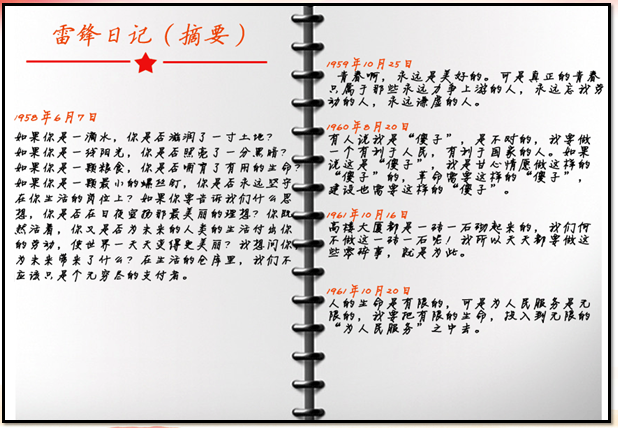 雷锋日记（摘要）
1958年6月7日
如果你是一滴水，你是否滋润了一寸土地？
如果你是一线阳光，你是否照亮了一分黑暗？
如果你是一颗粮食，你是否哺育了有用的生命？
如果你是一颗最小的螺丝钉，你是否永远坚守
在你生活的岗位上？如果你要告诉我们什么思
想，你是否在日夜宣扬那最美丽的理想？你既
然活着，你又是否为未来的人类的生活付出你
的劳动，使世界一天天变得更美丽？我想问你
为未来带来了什么？在生活的仓库里，我们不
应该只是个无穷尽的支付者。
1959年10月25日
青春啊，永远是美好的。可是真正的青春
只属于那些永远力争上游的人，永远忘我劳
动的人，永远谦虚的人。
1960年8月20日
有人说我是“傻子”，是不对的，我要做
一个有利于人民，有利于国家的人。如果
说这是“傻子”，我是甘心情愿做这样的
“傻子”的，革命需要这样的“傻子”，
建设也需要这样的“傻子”。
1961年10月16日
高楼大厦都是一砖一石砌起来的，我们何
不做这一砖一石呢！我所以天天都要做这
些零碎事，就是为此。
1961年10月20日
人的生命是有限的，可是为人民服务是无
限的，我要把有限的生命，投入到无限的
“为人民服务”之中去。